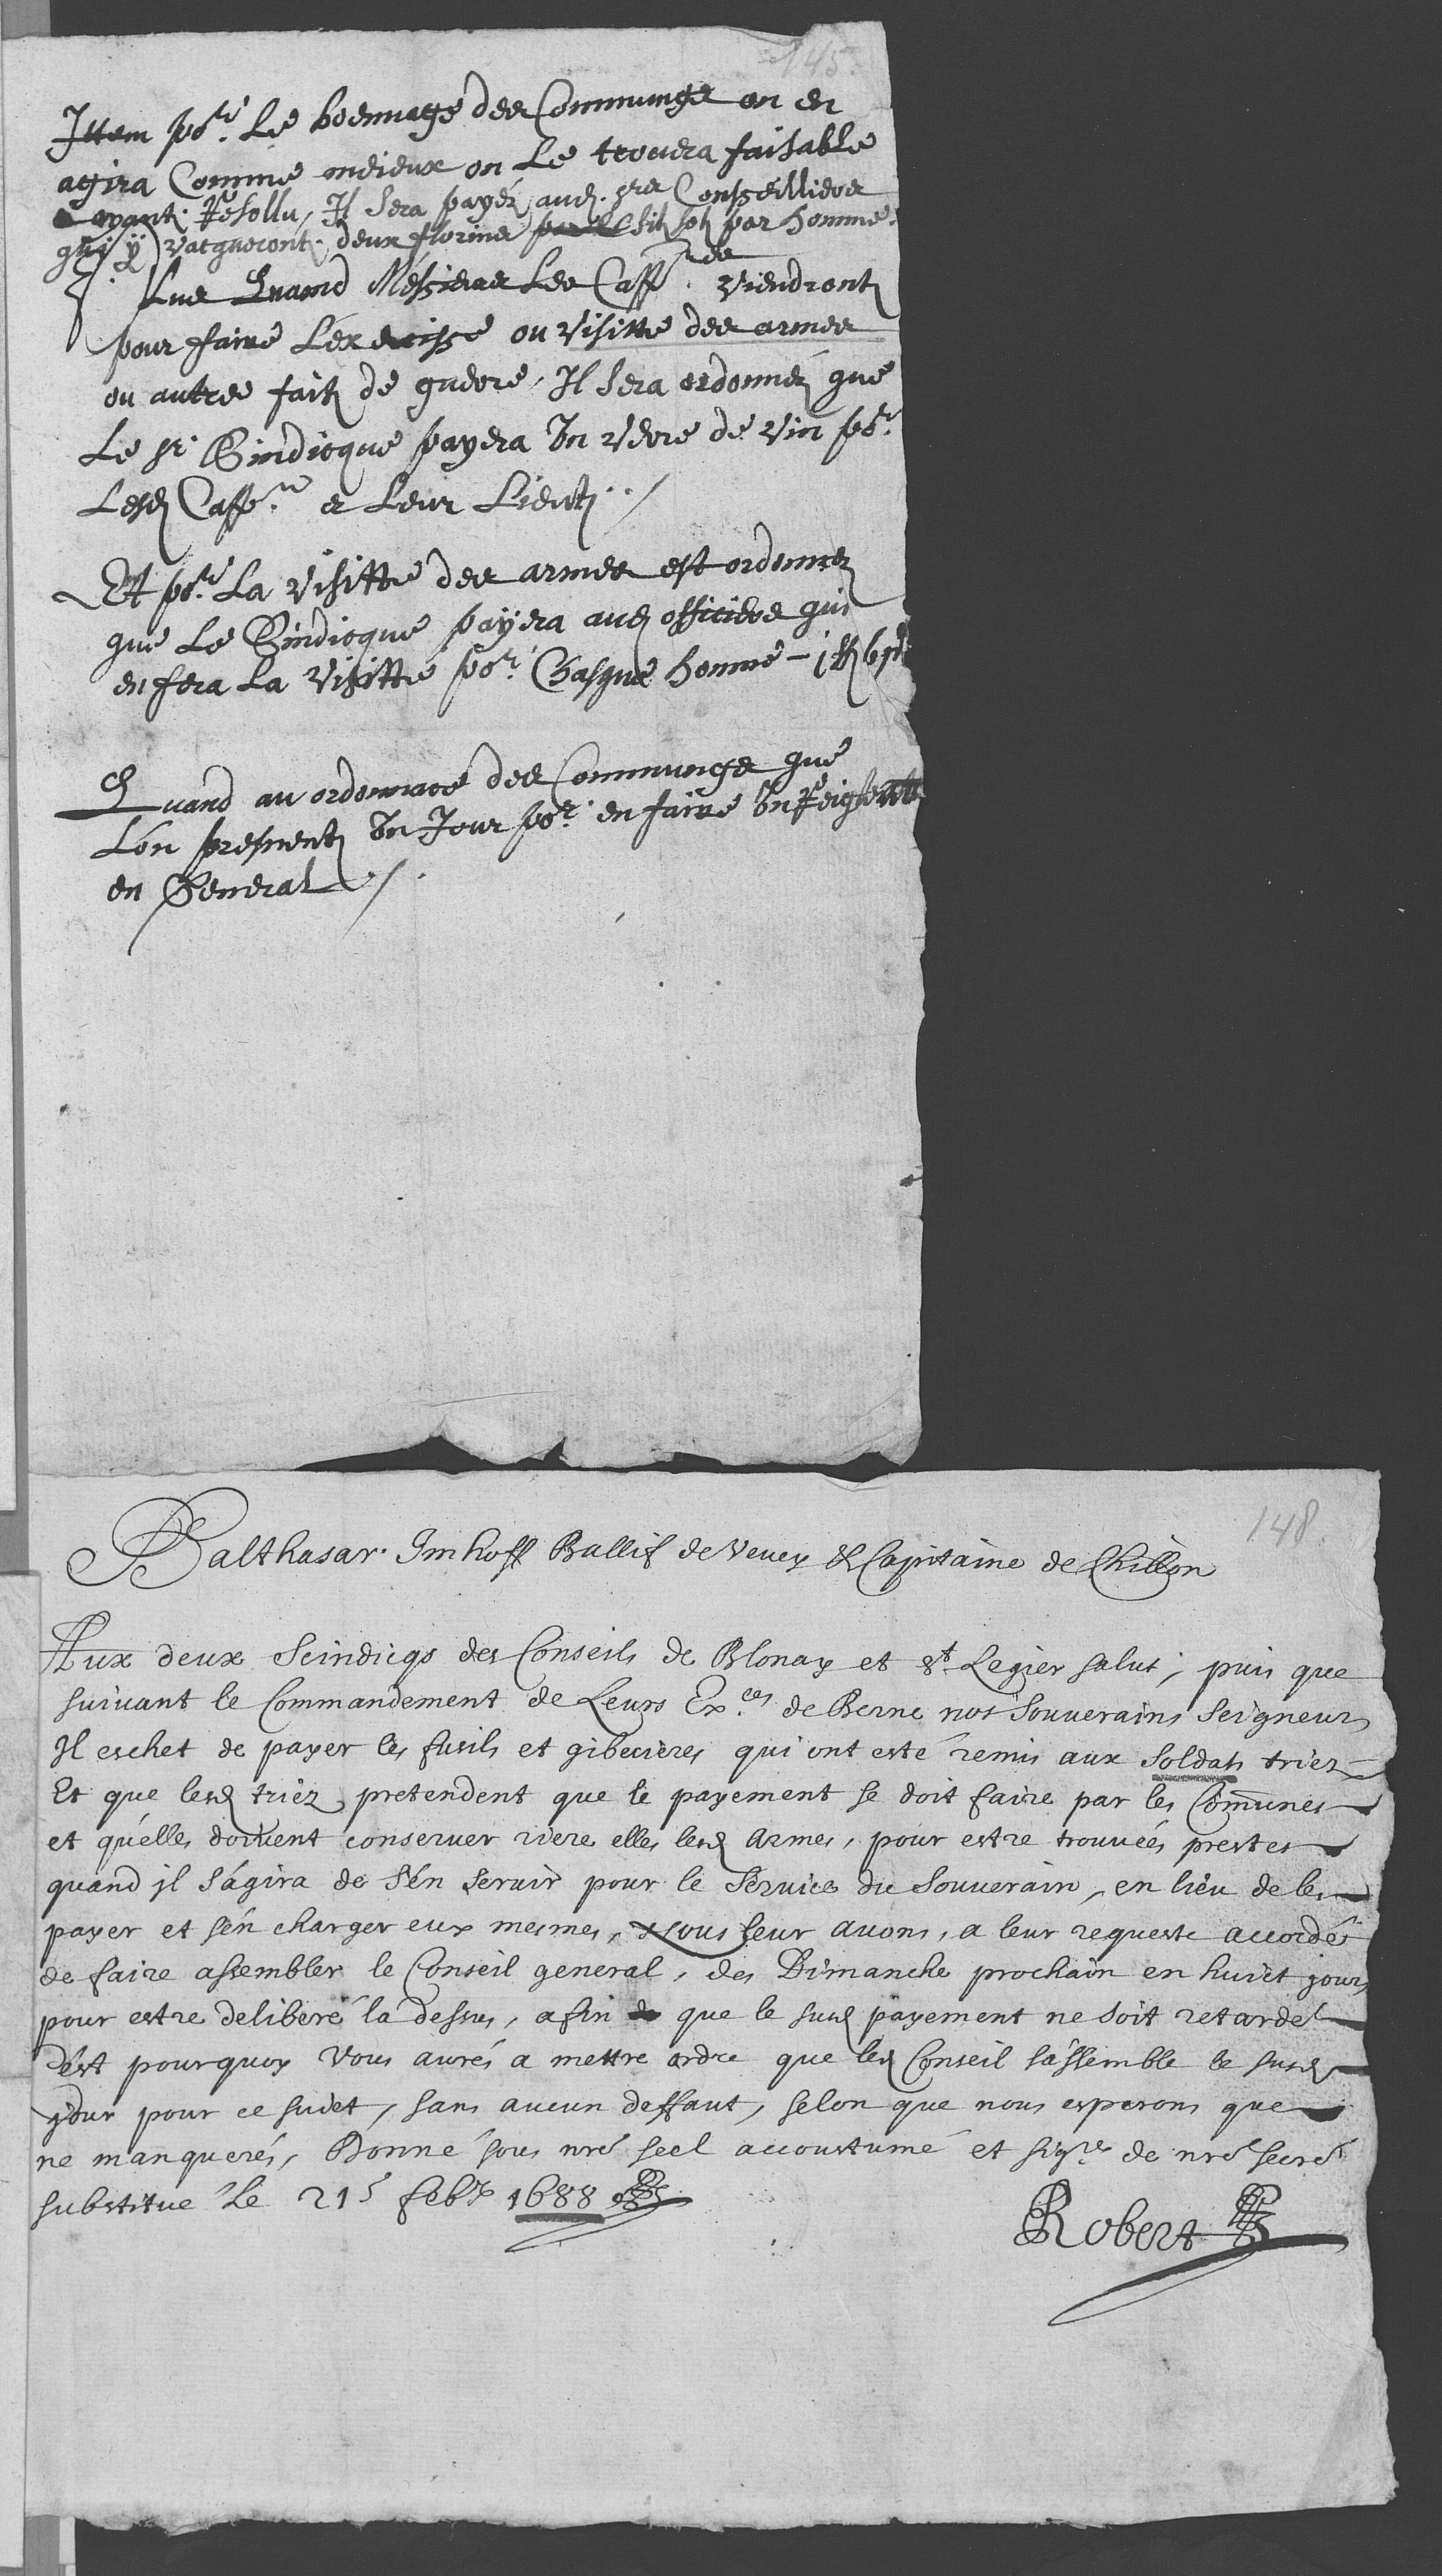 145.
Ittem po.r Le boennage des Communges on en
agira Comme meieux on Le trouvera faisable
ayant. Resollu, Il Sera payéz aud. srs Conseilliers
qui ÿ vacqueront. deux florins six sols par homme.
Que Quand Messieurs Les Capp.nes viendront
pour faire L'éxercisse ou visitte des armes
ou autres fait de guerre, Il sera ordonnéz que
Le sr. Sindicque payera un verre de vin po.r
Lesd Capp.ne et Leur Lieut. /
Et po.r La visitte des armes est ordonnez
que Le Sindicque payera aud officiers qui
en fera La visitte po.r Chasque homme –
Quand au ordonnance des Communges que
L'on prennent un Jour po.r en faire un
en General /.
148.
Balthasar. Imhoff Ballif de Vevey & Capitaine de Chillon
Aux deux Scindicqs des Conseils de Blonay et st. Legier salut, puis que
suivant le Commandement de Leurs Ex.ces de Berne nos Souverains Seigneurs
Il eschet de payer les fusils et gibecieres qui ont esté remis aux Soldats triez
Et que lesd triez pretendent que le payement se doit faire par les Comunes
et qu'elles doivent conserver riere elles lesd Armes, pour estre trouvées prestes
quand jl s'agira de s'en servir pour le Service du Souverain, en lieu de les
payer et s'en charger eux mesmes, Nous leur avons, a leur requeste accordé
de faire assembler le Conseil general, des Dimanche prochain en huict jours
pour estre deliberé la dessus, afin que le susd payement ne soit retardé
C'est pourquoy Vous aurés a mettre ordre que led Conseil s'assemble le susd
jour pour ce sujet, sans aucun deffaut, selon que nous esperons que
ne manquerés, Donné sous nré seel accoustumé et sig.re de nré secré
substitue Le 21e febr 1688
Robert